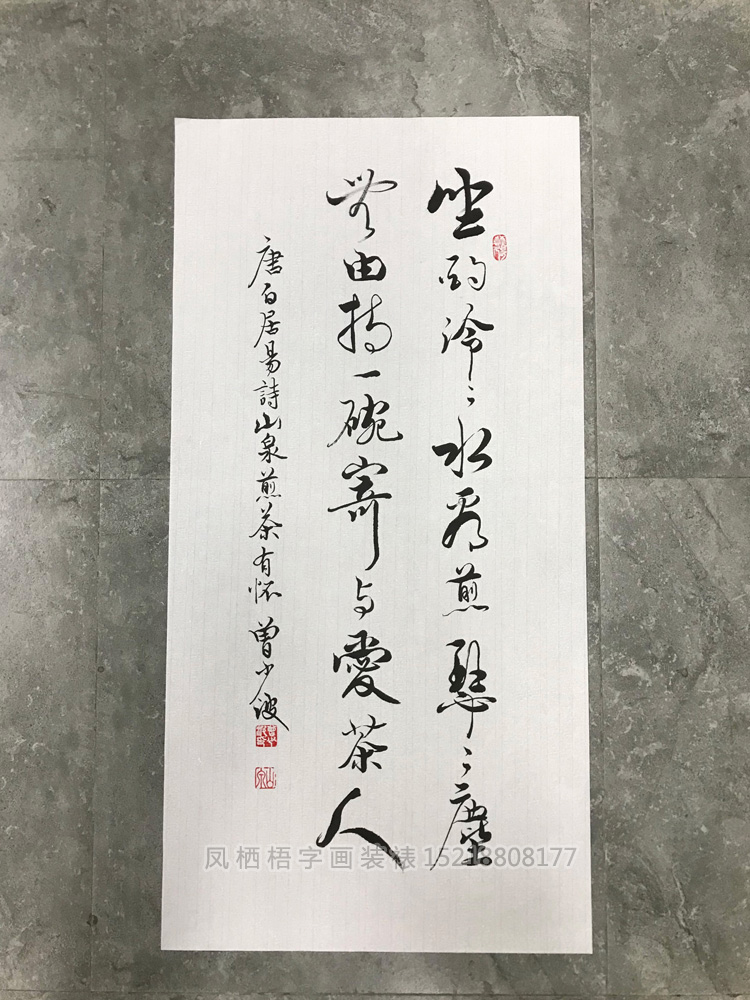 坐酌泠〻水看煎瑟〻塵
無由持一碗寄与愛茶人
唐白居易詩山泉煎茶有怀 曾少波
凤栖梧字画装裱15213808177